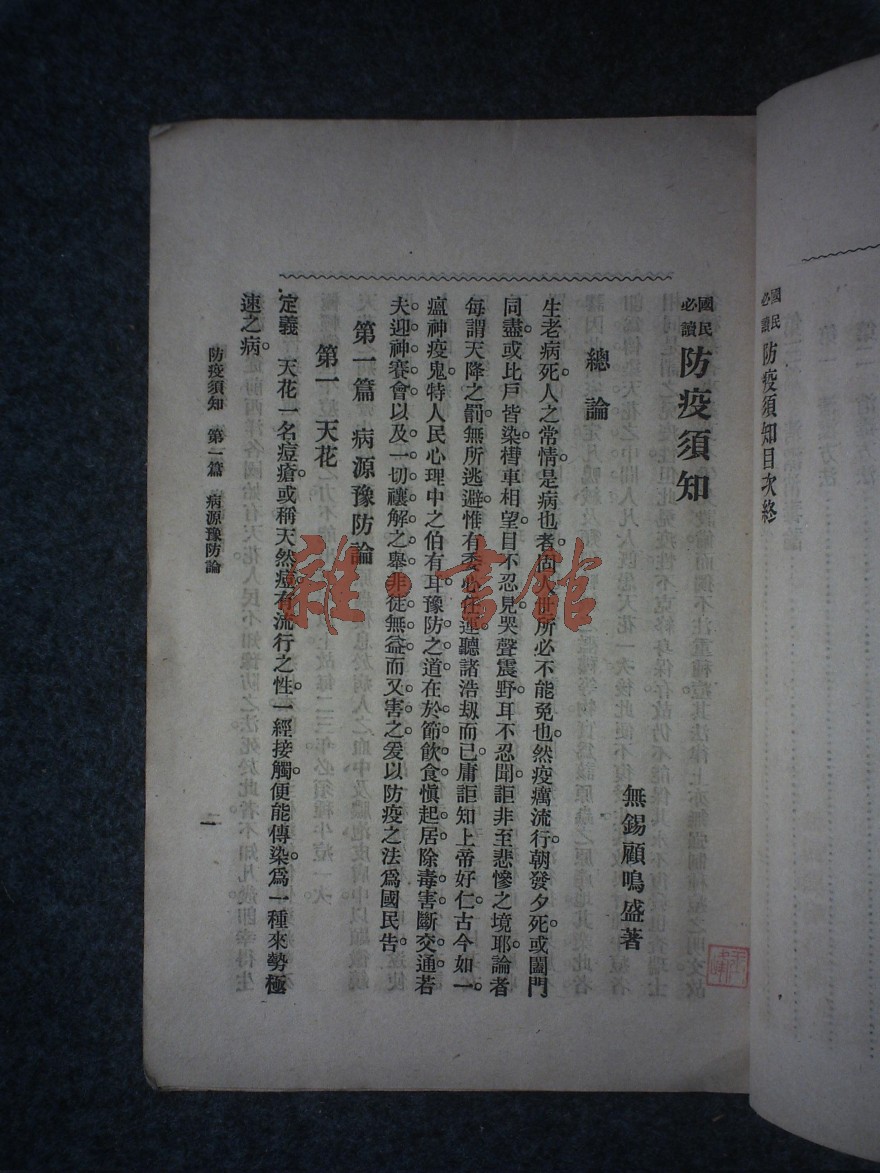 國民必讀防疫須知目次終
國民必讀 防疫須知
無錫顧鳴盛著
總論
生老病死。人之常情。是病也者。固人世所必不能免也。然疫癘流行。朝發夕死。或闔門
同盡。或比戶皆染。槥車相望。目不忍見。哭聲震野。耳不忍聞。詎非至悲慘之境耶。論者
每謂天降之罰。無所逃避。惟有委心任運。聽諸浩刼而已。庸詎知上帝好仁。古今如一。
瘟神疫鬼。特人民心理中之伯有耳。豫防之道。在於節飲食。愼起居。除毒害。斷交通。若
夫迎神賽會。以及一切禳解之舉。非徒無益。而又害之。爰以防疫之法。爲國民告。
第一篇 病源豫防論
第一 天花
定義 天花一名痘瘡。或稱天然痘。有流行之性。一經接觸。便能傳染。爲一種來勢極
速之病。
防疫須知 第一篇 病源豫防論
一
雜·書館